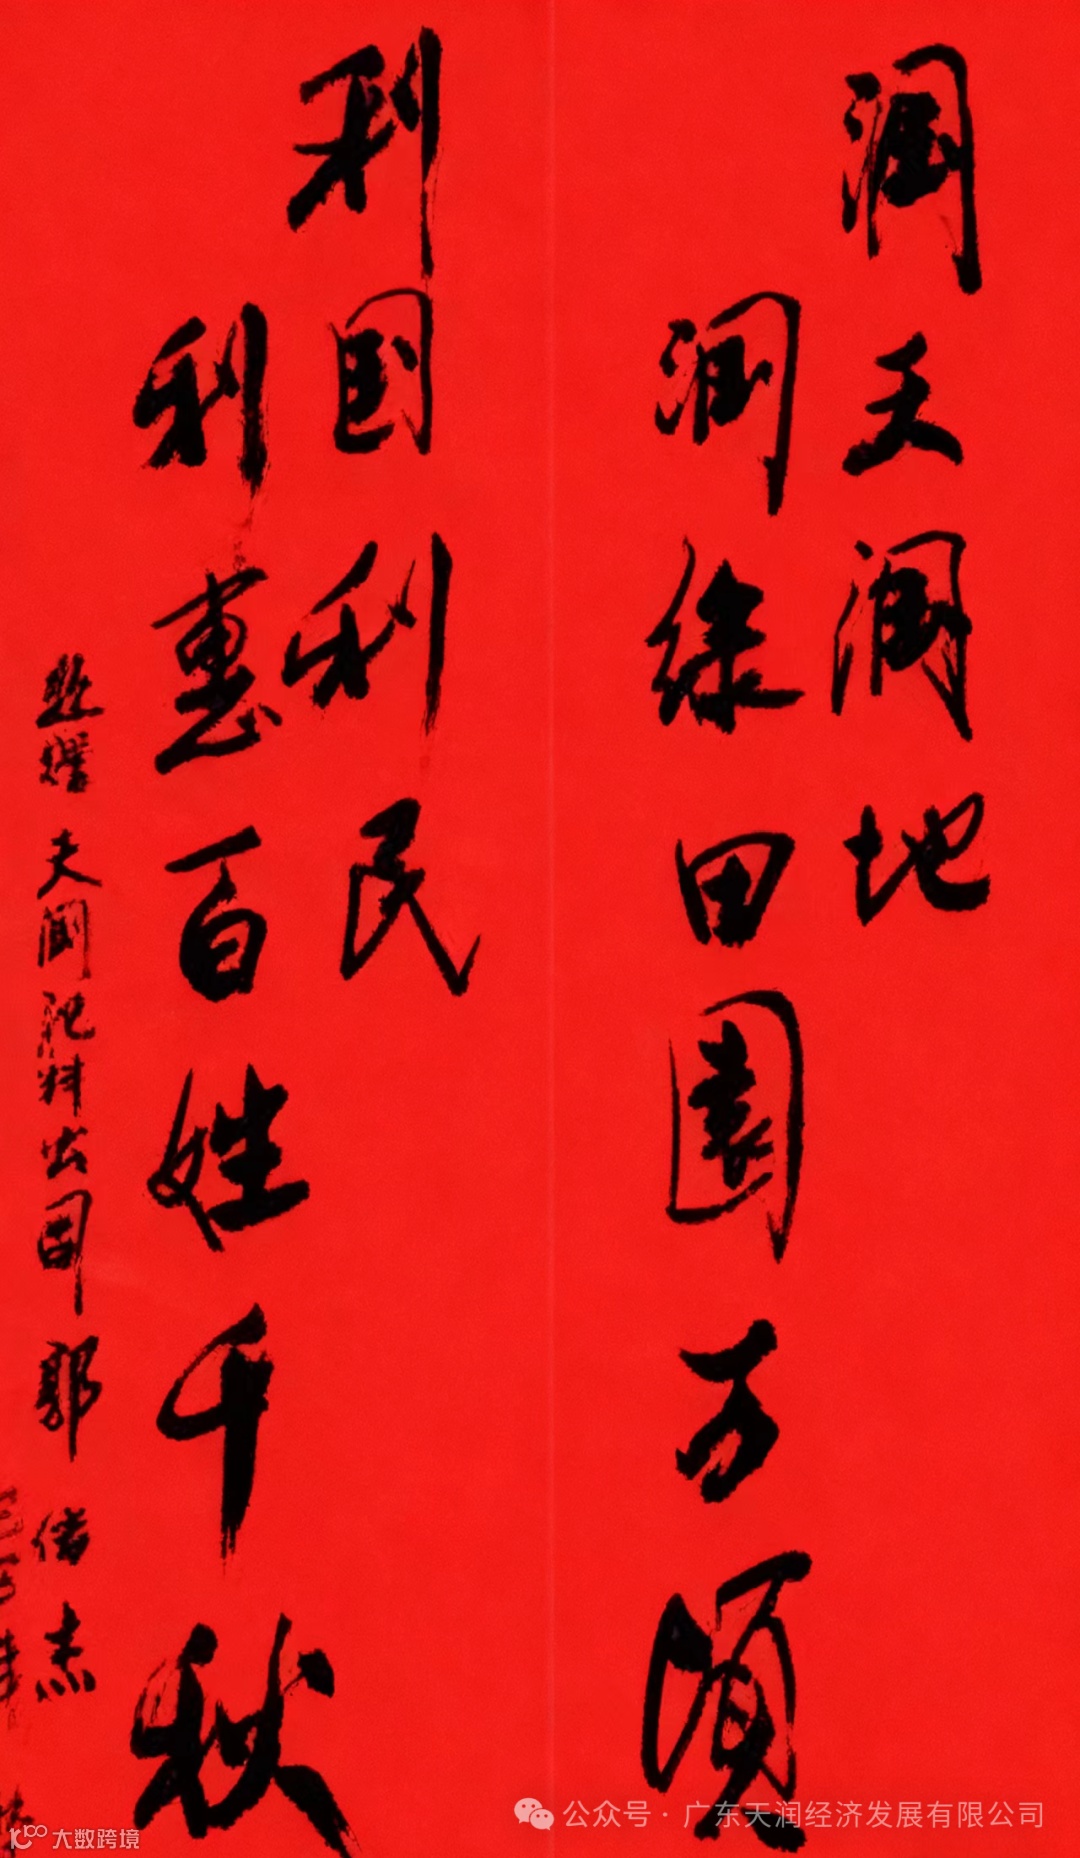 润天润地
润绿田园万顷
利国利民
利惠百姓千秋
天润肥料公司 郭
公众号·广东天润经济发展有限公司
大数跨境